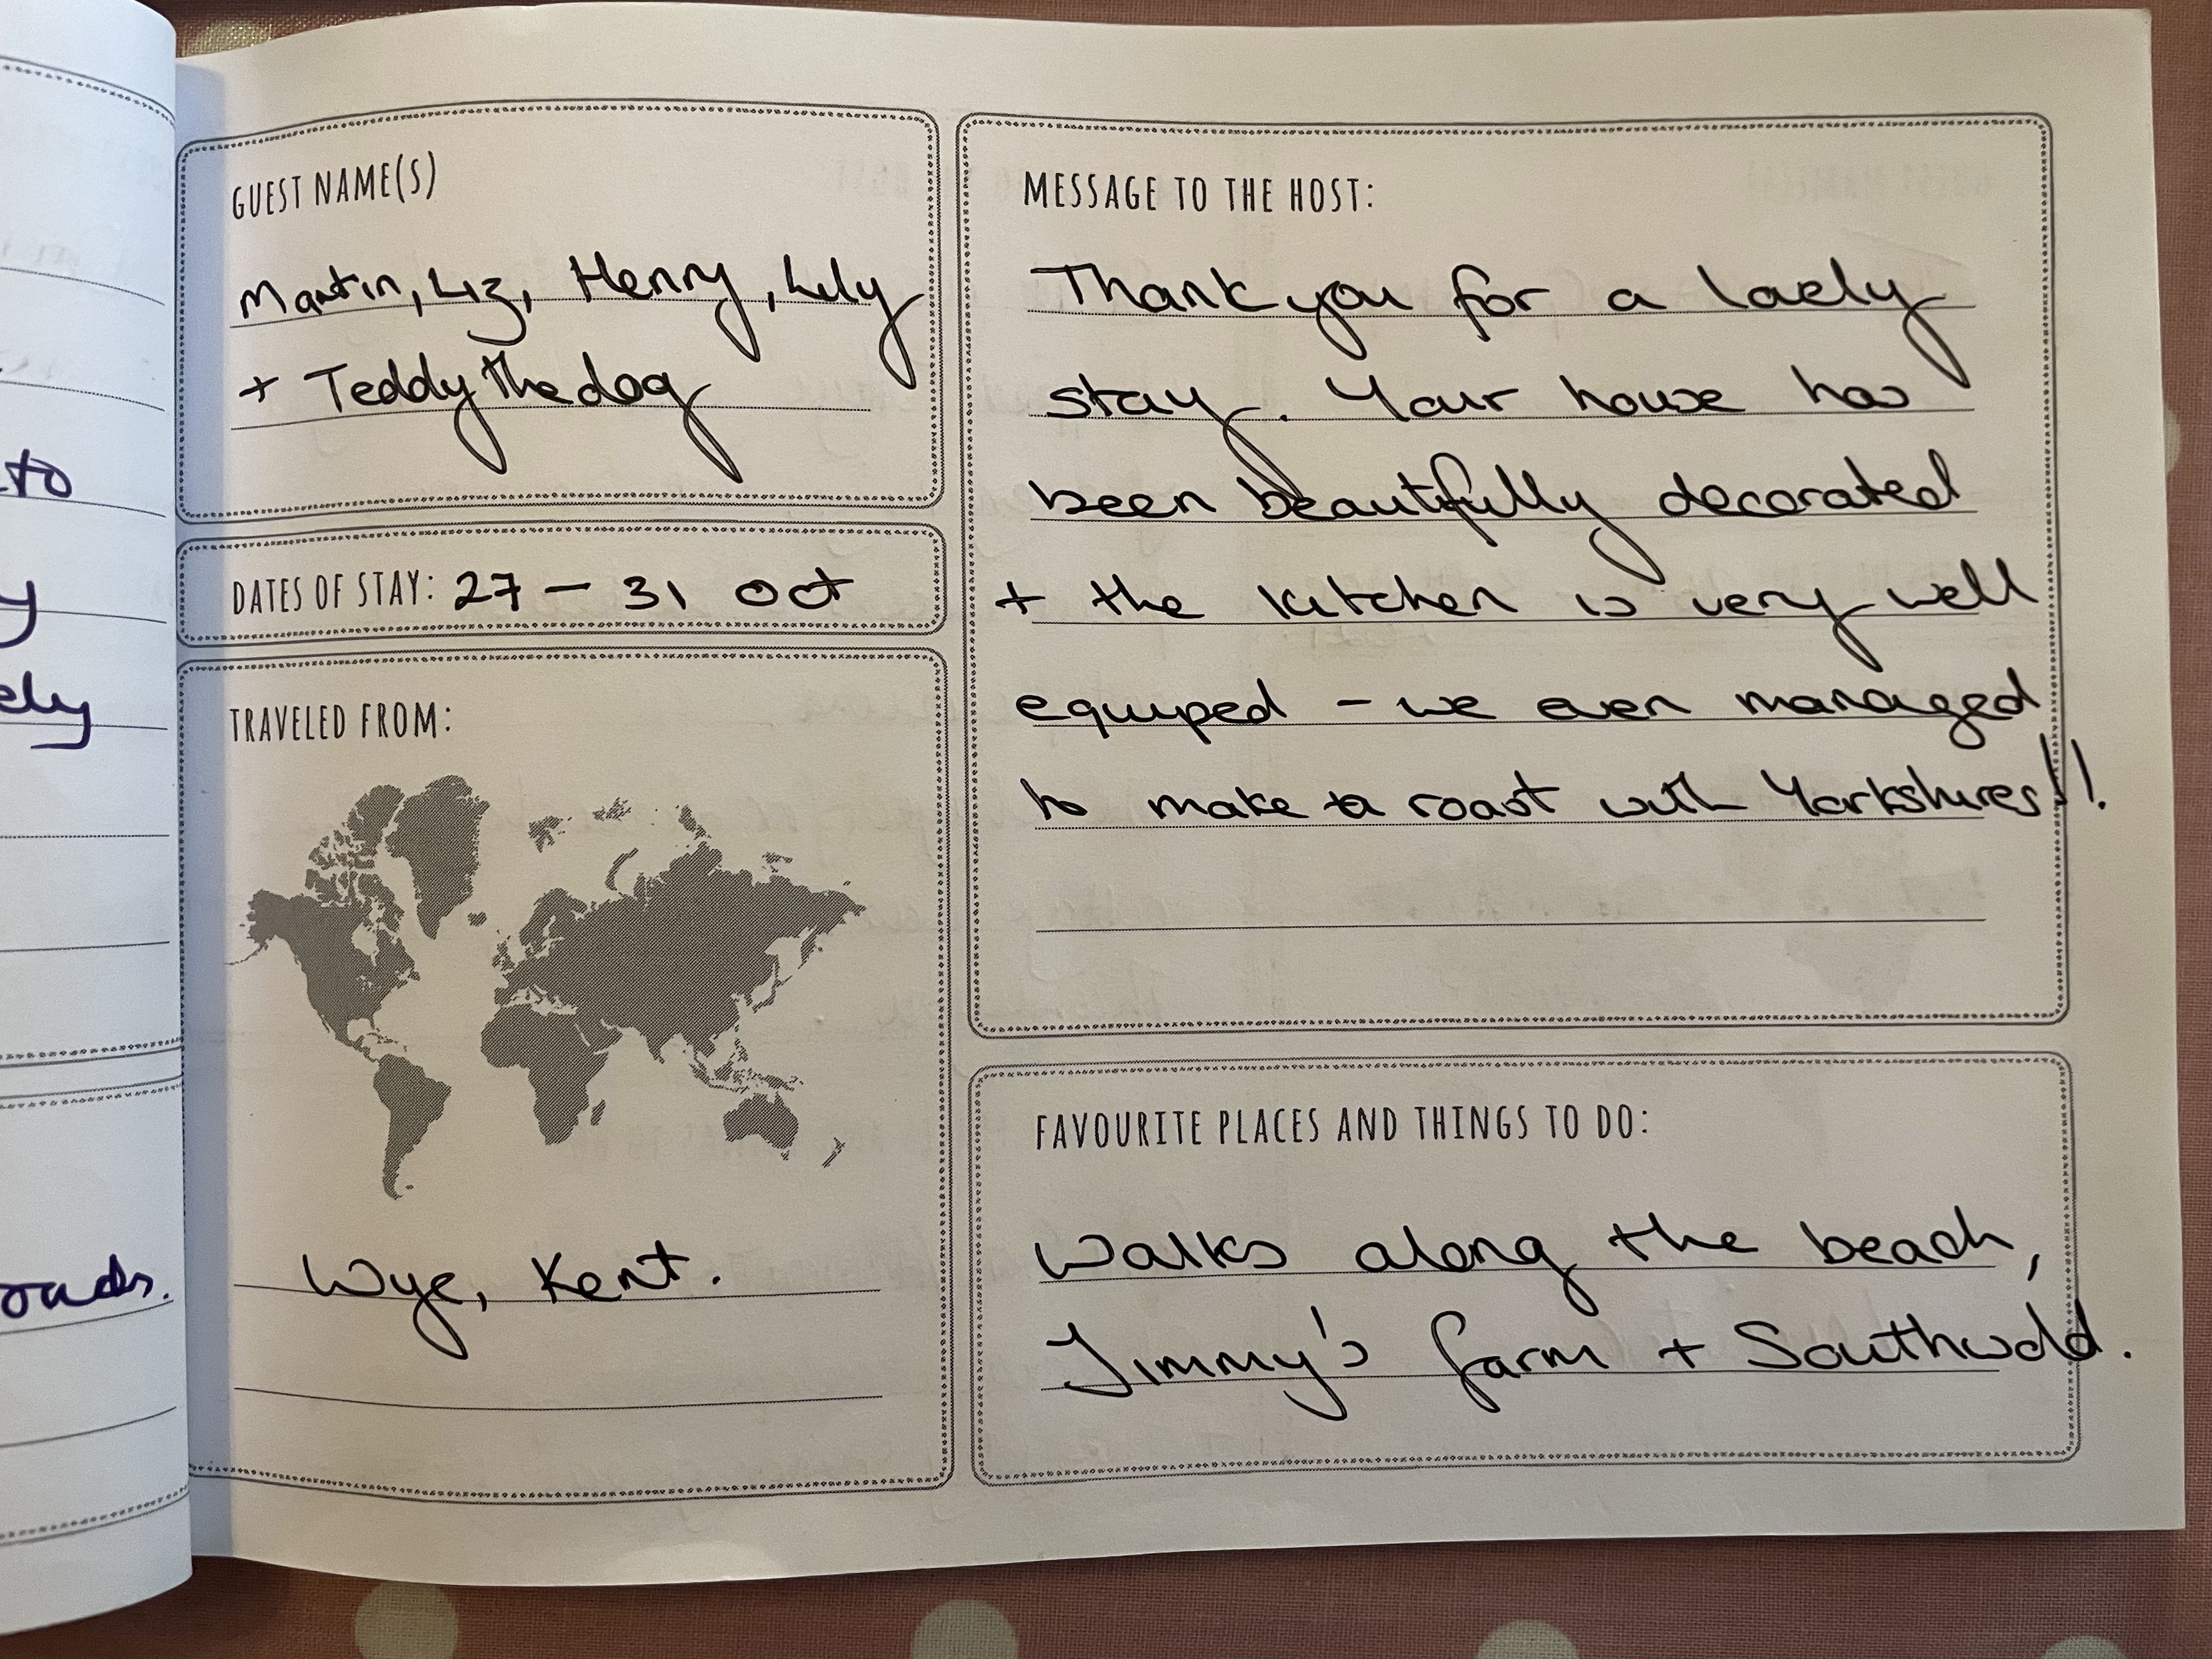 to
y
ely
GUEST NAME(S)
Martin, Liz, Henry, Lily
+ Teddy the dog
DATES OF STAY: 27 – 31 Oct
TRAVELED FROM:
Wye, Kent.
MESSAGE TO THE HOST:
Thank you for a lovely
stay. Your house has
been beautifully decorated
+ the kitchen is very well
equiped – we even managed
to make a roast with Yorkshires!!
FAVOURITE PLACES AND THINGS TO DO:
Walks along the beach,
Jimmy's farm + Southwold.